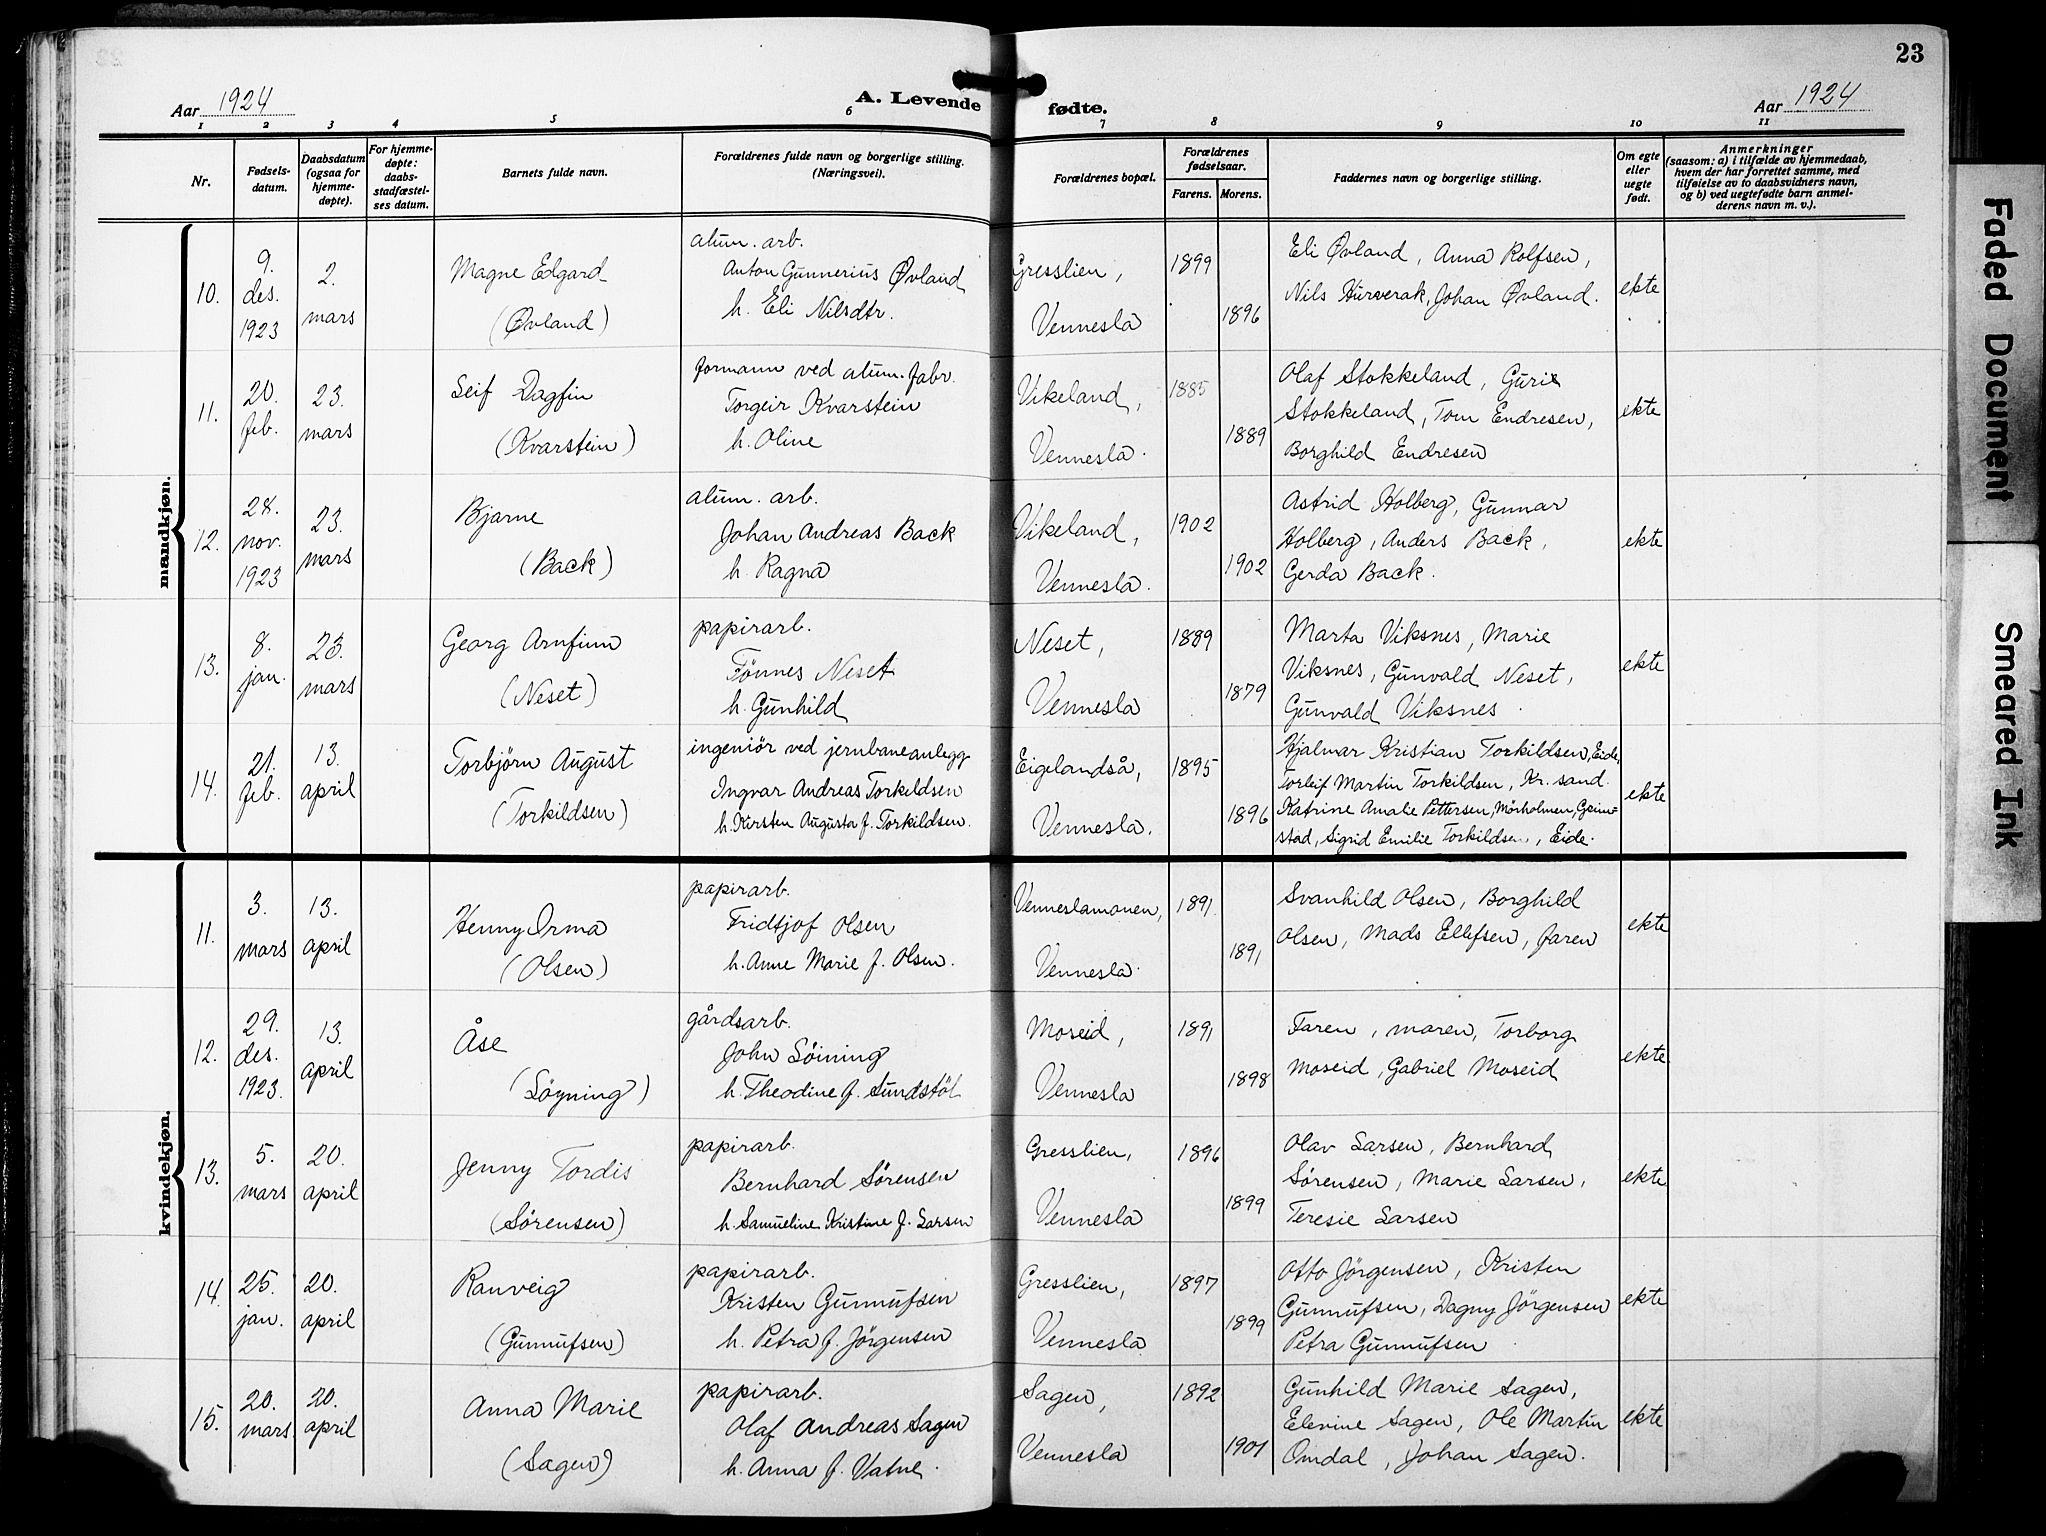 23
Aar 1924
A. Levende
fødte.
Aar 1924
1 2 3 4 5 6 7 8 9 10 11
Nr.
Fødsels-
datum.
Daabsdatum
(ogsaa for
hjemme-
døpte).
For hjemme-
døpte:
daabs-
stadfæstel-
ses datum.
Barnets fulde navn.
Forældrenes fulde navn og borgerlige stilling.
(Næringsvei).
Forældrenes bopæl.
Forældrenes
fødselsaar.
Farens. Morens.
Faddernes navn og borgerlige stilling.
Om egte
eller
uegte
født.
Anmerkninger
(saasom: a) i tilfælde av hjemmedaab,
hvem der har forrettet samme, med
tilføielse av to daabsvidners navn,
og b) ved uegtefødte barn anmel-
derens navn m. v.).
mandkjøn.
10.
9.
des.
1923
2.
mars
Magne Edgard
(Øvland)
alum. arb.
Anton Gunnerius Øvland
h. Eli Nilsdtr.
Gresslien,
Vennesla
1899
1896
Eli Øvland, Anna Rolfsen,
Nils Hurverak, Johan Øvland.
ekte
11.
20.
feb.
23.
mars
Leif Dagfin
(Kvarstein)
formann ved alum. fabr.
Torgeir Kvarstein
h. Oline
Vikeland,
Vennesla.
1885
1889
Olaf Stokkeland, Gurie
Stokkeland, Tom Endresen,
Borghild Endresen
ekte
12.
28.
nov.
1923
23.
mars
Bjarne
(Back)
alum. arb.
Johan Andreas Back
h. Ragna
Vikeland,
Vennesla.
1902
1902
Astrid Holberg, Gunnar
Holberg, Anders Back,
Gerda Back.
ekte
13.
8.
jan.
23.
mars
Georg Arnfinn
(Neset)
papirarb.
Tönnes Neset
h. Gunhild
Neset,
Vennesla
1889
1879
Marta Viksnes, Marie
Viksnes, Gunvald Neset,
Gunvald Viksnes.
ekte
14.
21.
feb.
13.
april
Torbjörn August
(Torkildsen)
ingeniör ved jernbaneanlegg
Ingvar Andreas Torkildsen
h. Kirsten Augusta f. Torkildsen.
Eigelandså,
Vennesla.
1895
1896
Hjalmar Kristian Torkildsen, Eide,
Torleif Martin Torkildsen, Kr. sand.
Katrine Amalie Pettersen, Mörholmen, Grim=
stad, Sigrid Emilie Torkildsen, Eide.
ekte
kvindekjøn.
11.
3.
mars
13.
april
Henny Orma
(Olsen)
papirarb.
Fridtjof Olsen
h. Anne Marie f. Olsen.
Venneslamonen,
Vennesla.
1891
1891
Svanhild Olsen, Borghild
Olsen, Mads Ellefsen, faren
ekte
12.
29.
des.
1923.
13.
april
Åse
(Löyning)
gårdsarb.
John Löining
h. Theodine f. Sundstöl
Moseid,
Vennesla
1891
1898
Faren, moren, Torborg
Moseid, Gabriel Moseid
ekte
13.
5.
mars
20.
april
Jenny Tordis
(Sörensen)
papirarb.
Bernhard Sörensen
h. Samueline Kristine f. Larsen
Gresslien,
Vennesla
1896
1899
Olav Larsen, Bernhard
Sörensen, Marie Larsen,
Teresie Larsen
ekte
14.
25.
jan.
20.
april
Ranveig
(Gunnufsen)
papirarb.
Kristen Gunnufsen
h. Petra f. Jörgensen
Gresslien,
Vennesla
1897
1899
Otto Jörgensen, Kristen
Gunnufsen, Dagny Jörgensen
Petra Gunnufsen
ekte
15.
20.
mars
20.
april
Anna Marie
(Sagen)
papirarb.
Olaf Andreas Sagen
h. Anna f. Vatne.
Sagen,
Vennesla
1892
1901
Gunhild Marie Sagen,
Elevine Sagen, Ole Martin
Omdal, Johan Sagen.
ekte
Faded Document
Smeared Ink